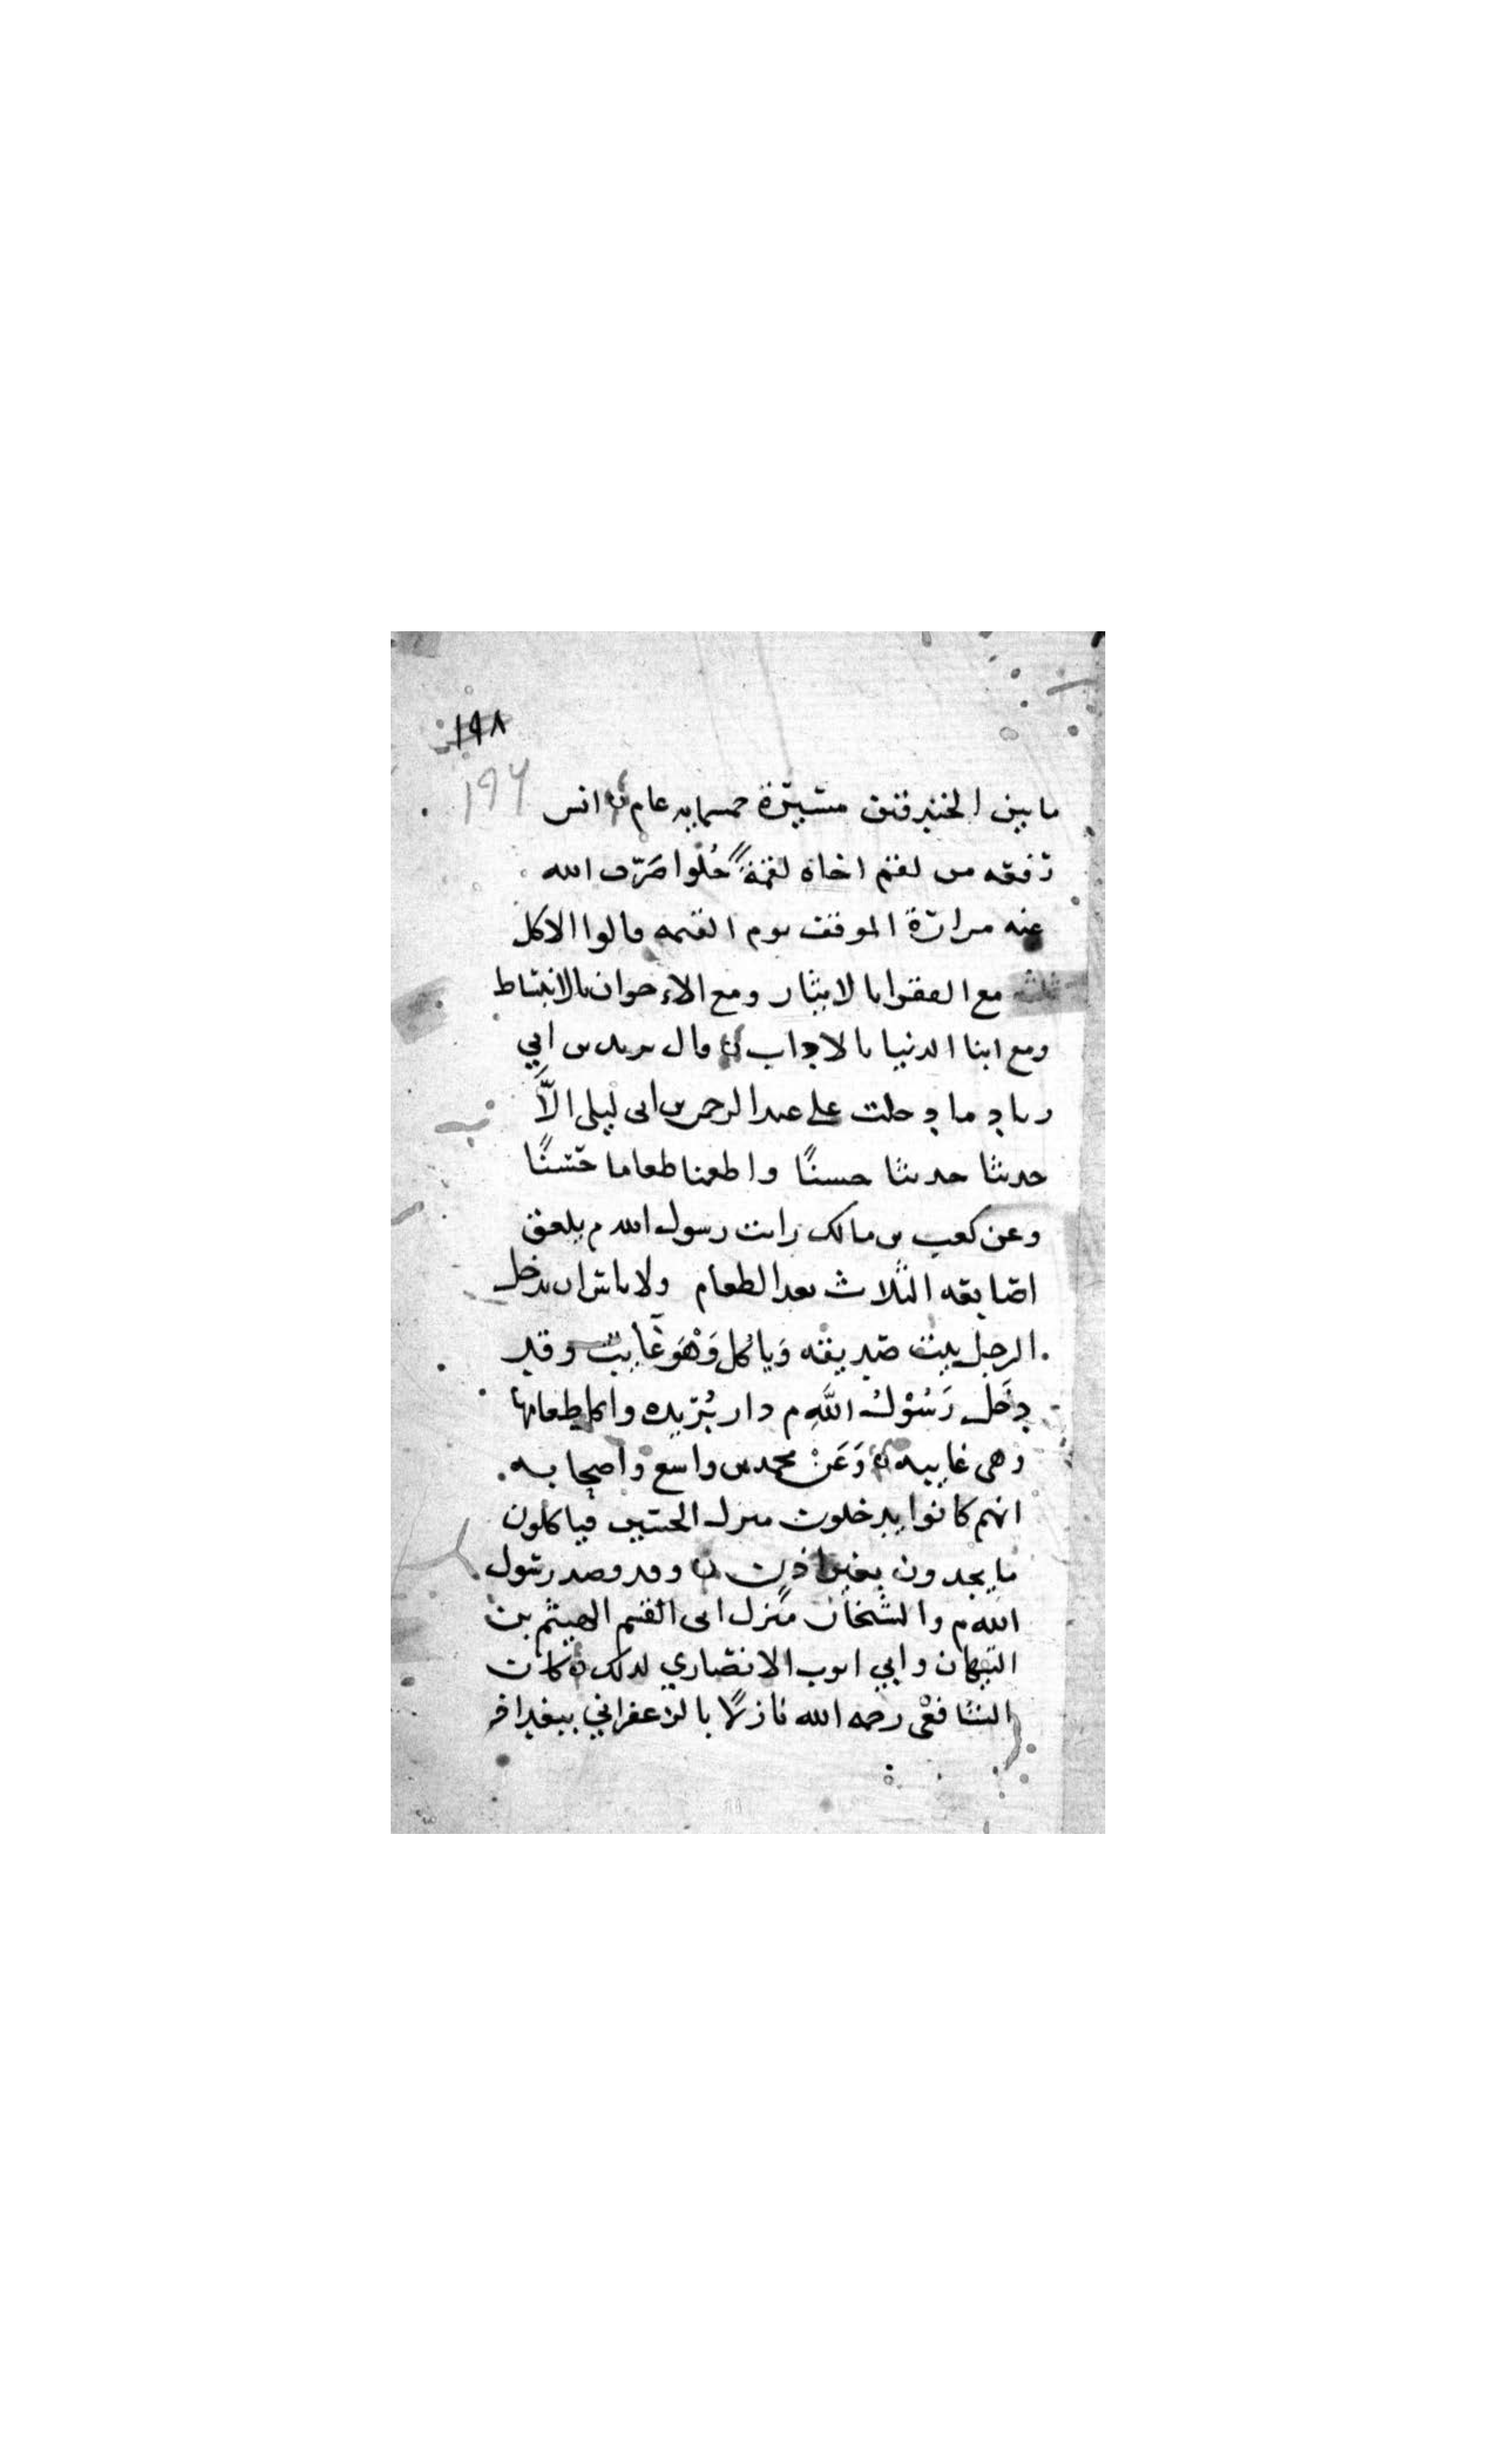 ١٩٨
١٩٦
ما بين الخندقين مسيرة خمسمايه عام ن انس
رفعه من لقم اخاه لقمة حلوا صرف الله
عنه مرارة الموقف يوم القيمه قالوا الاكل
ثلث مع الفقرا بالايثار ومع الاخوان بالانبساط
ومع ابنا الدنيا بالاداب ن قال يزيد بن ابي
زياد ما دخلت على عبد الرحمن بن ابى ليلى الاَّ
حدثنا حديثا حسنًا واطعمنا طعاما حسنًا
وعن كعب بن مالك رايت رسول الله م يلعق
اصابعه الثلاث بعد الطعام ولا باس ان يدخل
الرجل بيت صديقه وَياكل وَهْوَ غايب وقد
دخَل رَسُوْلُ اللَّهِ م دار بُرَيده واكل طعامها
وهى غايبه ن وَعَنْ محمد بن واسع واصحابه
انهم كانوا يدخلون منزل الحسن فياكلون
ما يجدون بغير اذن ن وقد قصد رسول
الله م والشيخان منزل ابى القسم الهيثم بن
التيهان وابي ايوب الانصاري لذلك ن كان
الشافعى رحمه الله نازلًا بالزعفراني ببغداد